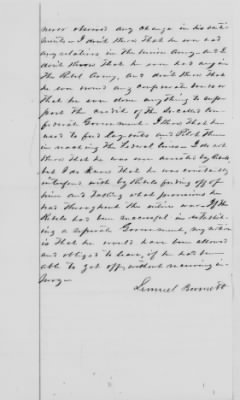 never observed any change in his senti-
ments. I don't know that he ever had
any relatives in the Union Army, and I
don't know that he ever had any in
the Rebel Army, and don't know that
he ever owned any Confederate bonds or
that he ever done anything to sup-
port the credit of the so called Con-
federate Government. I know that he
used to feed Layouts and Pilot them
in reaching the Federal lines. I do not
know that he was ever arrested by Rebels
but I do know that he was constantly
interfered with by Rebels feeding off of
him and taking what provisions he
had throughout the entire war. If the
Rebels had been successful in establish-
ing a separate Government, my notion
is that he would have been allowed
and obliged to leave, if he had been
able to get off, without receiving in-
jury.
Lemuel Burnett